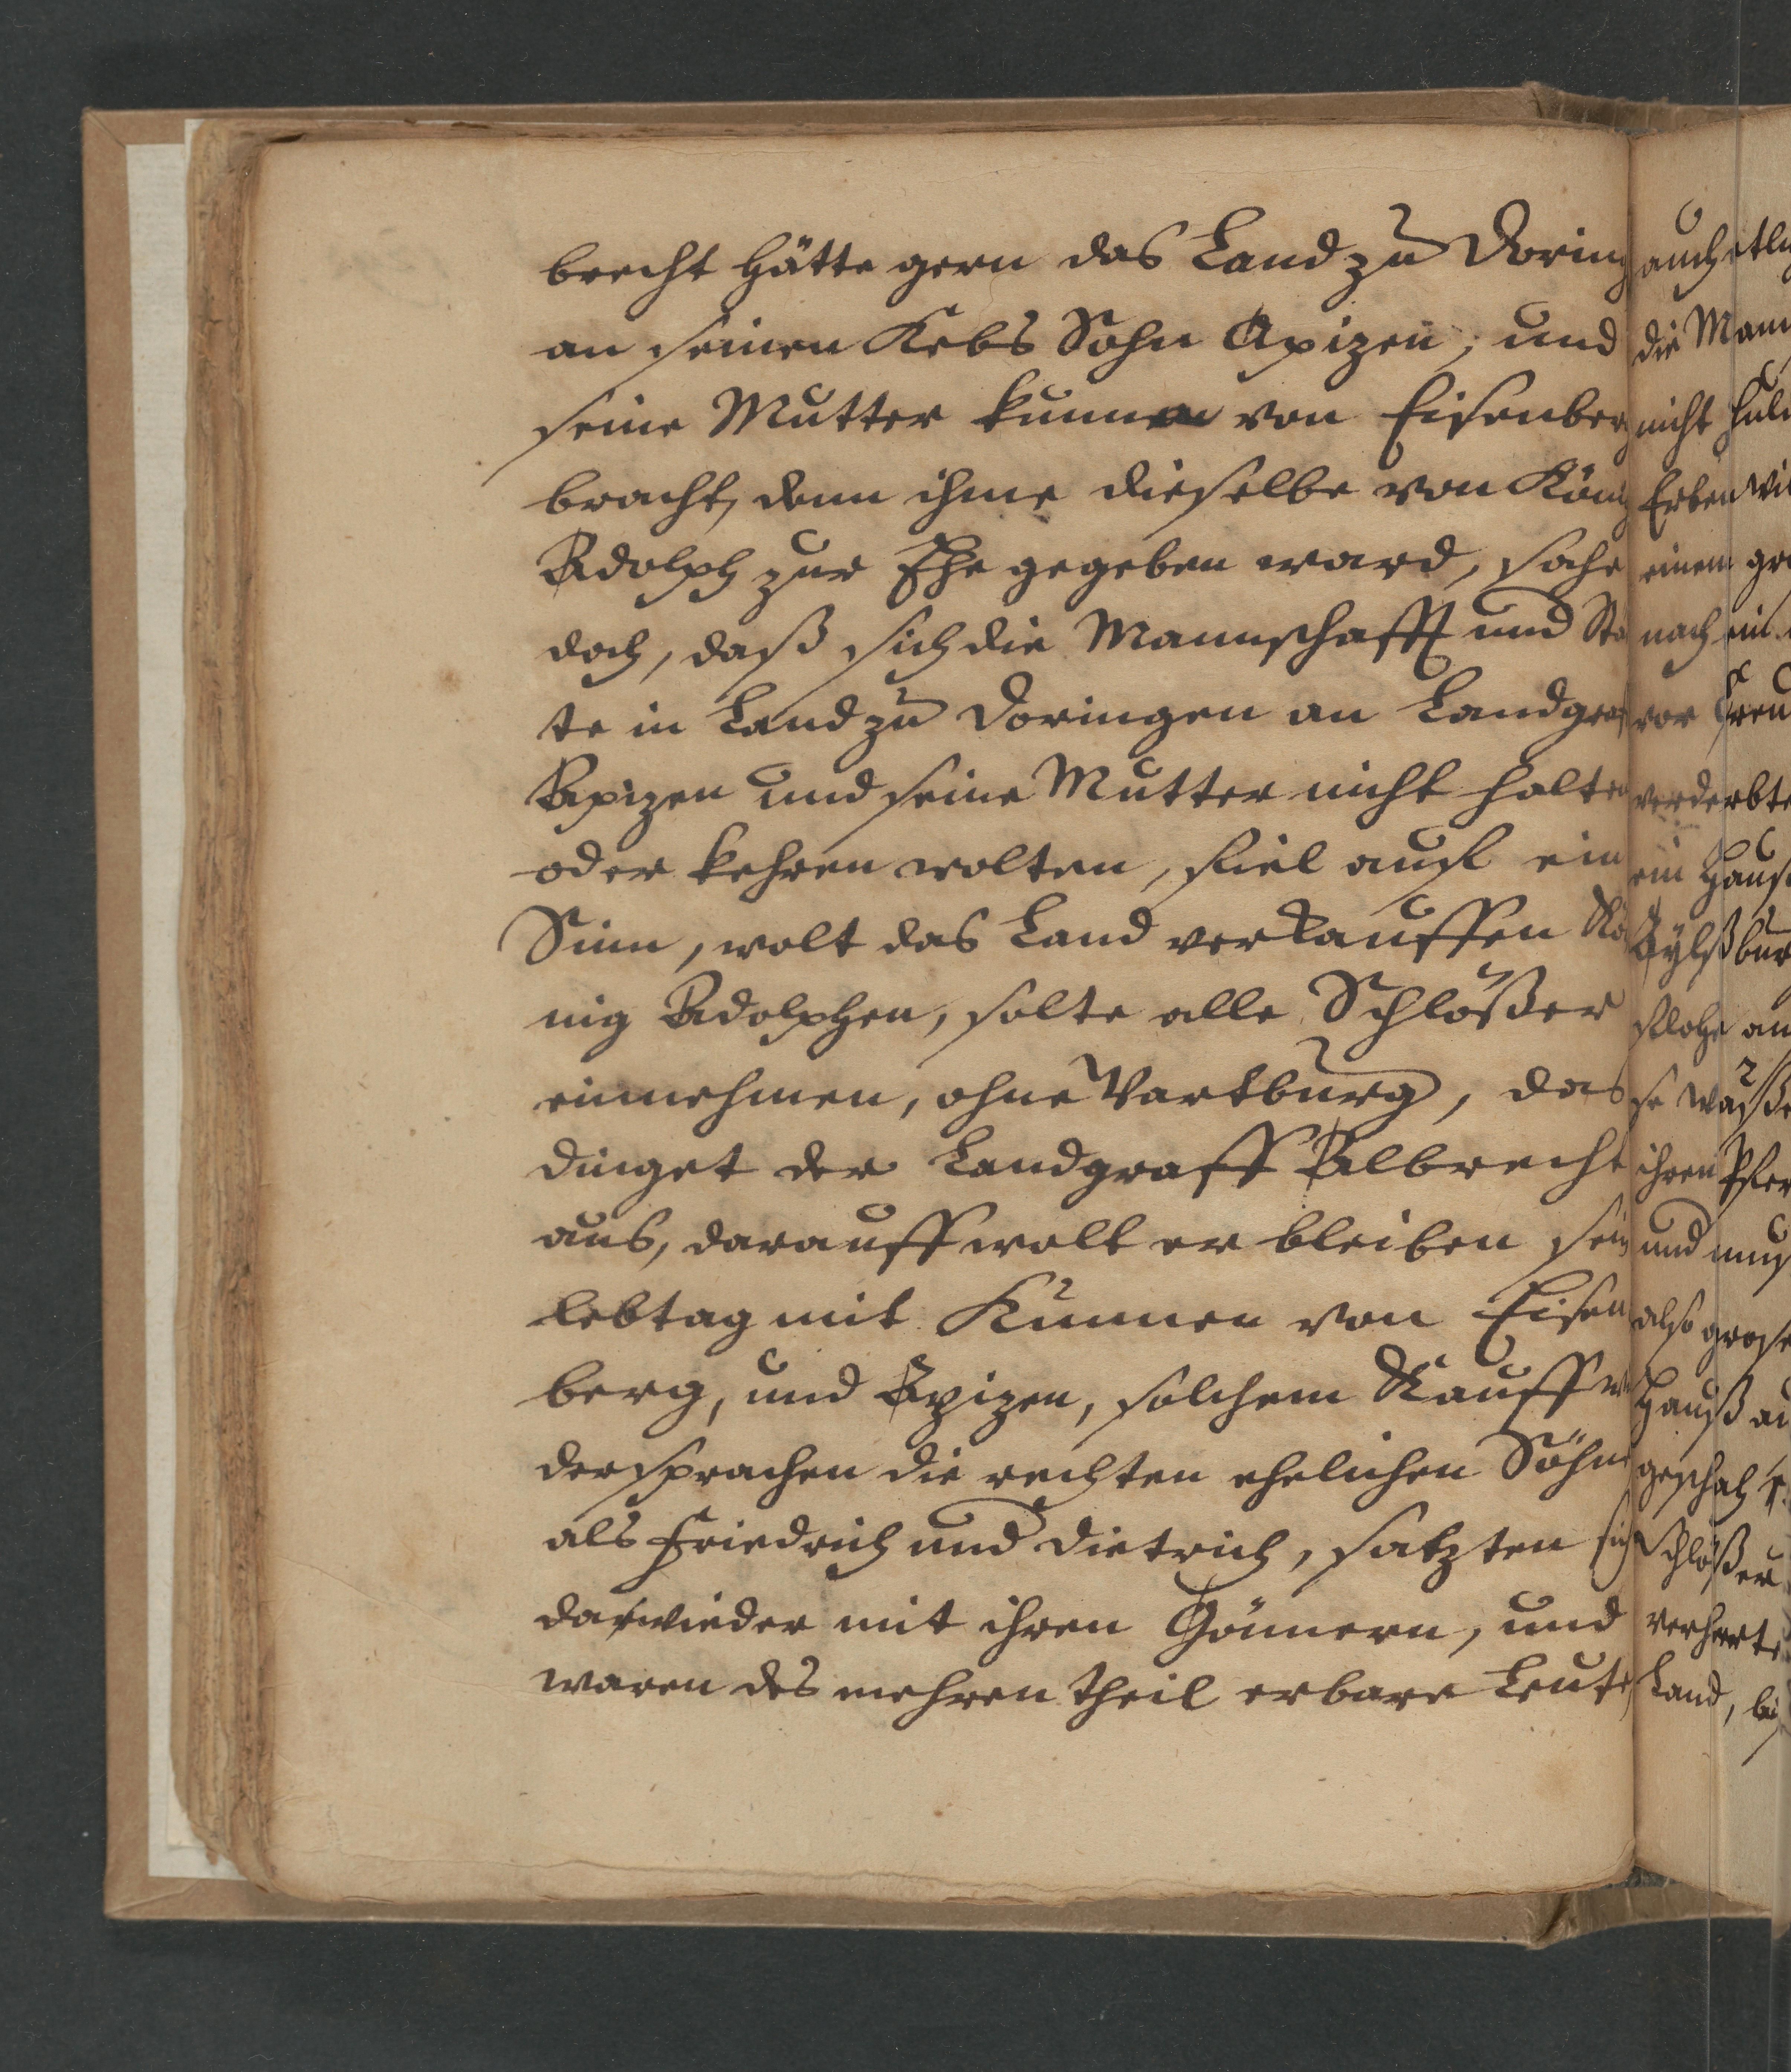 brecht hätte gern das Land zu Doring
an seinen Kebs Sohn Apizen, und
seine Mutter kunnen von Eisenberg
bracht, denn ihme dieselbe von König
Adolph zur Ehe gegeben ward, sahe
doch, daß sich die Mannschafft und Stä
te in Land zu Doringen an Landgraf
Apizen und seine Mutter nicht halten
oder kehren wolten, fiel auf ein
Sinn, wolt das Land verkauffen Kö
nig Adolphen, solte alle Schlößer
einnehmen, ohne Wartburg, das
dinget der Landgraff Albrecht
aus, darauff wolt er bleiben sein
lebtag mit Kunnen von Eisen
berg, und Apizen, solchem Kauff wi
dersprachen die rechten ehelichen Söhne
als Friedrich und Dietrich, satzten sich
darwieder mit ihren Gönnern, und
waren des mehren theil erbare Leute,
auch etli
die Mann
nicht huld
Erben
einem gro
nach ein
vor
verderbte
ein Hauß

an
se
ihren Pfer
und muß
also große
Hauß
geschah
Schlößer
verheerte
Land,